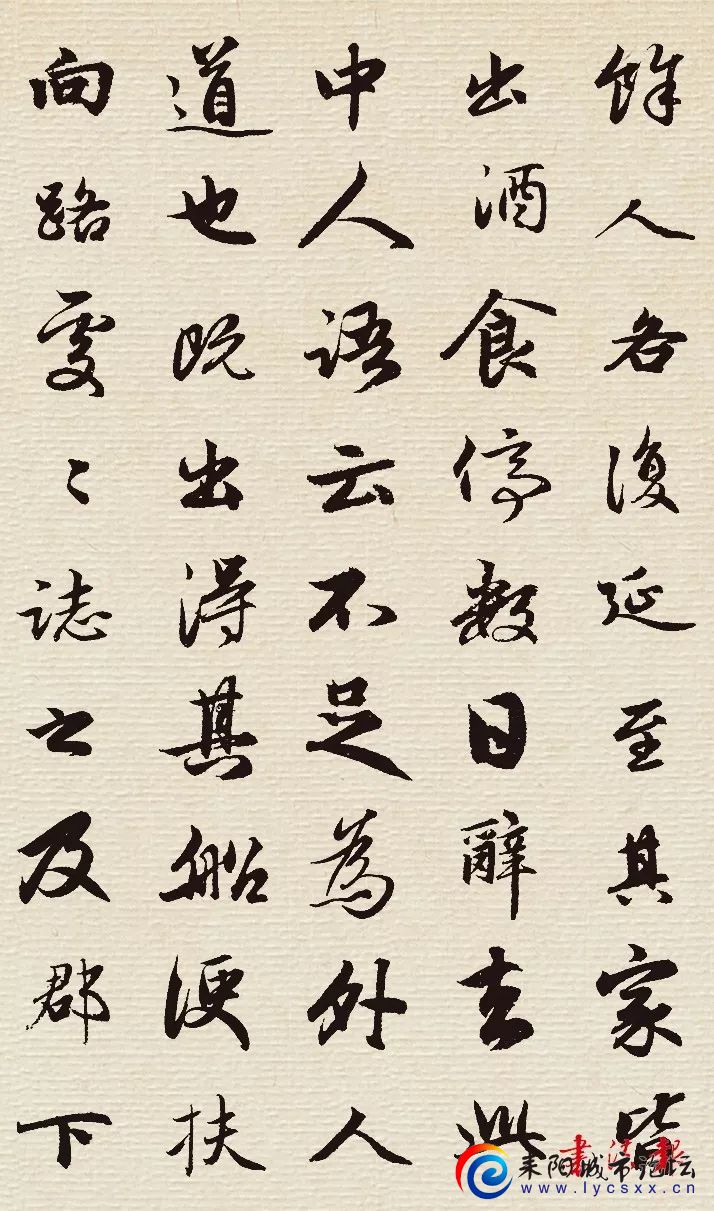 餘人各復延至其家皆
出酒食停數日辭去此
中人語云不足為外人
道也既出得其船便扶
向路處〻誌之及郡下
書法報
耒阳城市论坛
www.lycsxx.cn